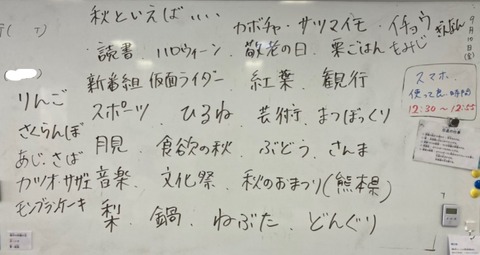 秋といえば‥‥ カボチャ・サツマイモ・イチョウ ぎんなん
・読書・ハロウィーン・敬老の日・栗ごはん もみじ
新番組 仮面ライダー・紅葉・観行
りんご スポーツ ひるね・芸術・まつぼっくり
さくらんぼ 月見・食欲の秋・ぶどう・さんま
あじ・さば
カツオ・サザエ 音楽・文化祭・秋のおまつり(熊本県)
モンブランケーキ 梨・鍋・ねぶた・どんぐり
9月10日(金)
スマホ
使って良い時間
12:30〜12:55